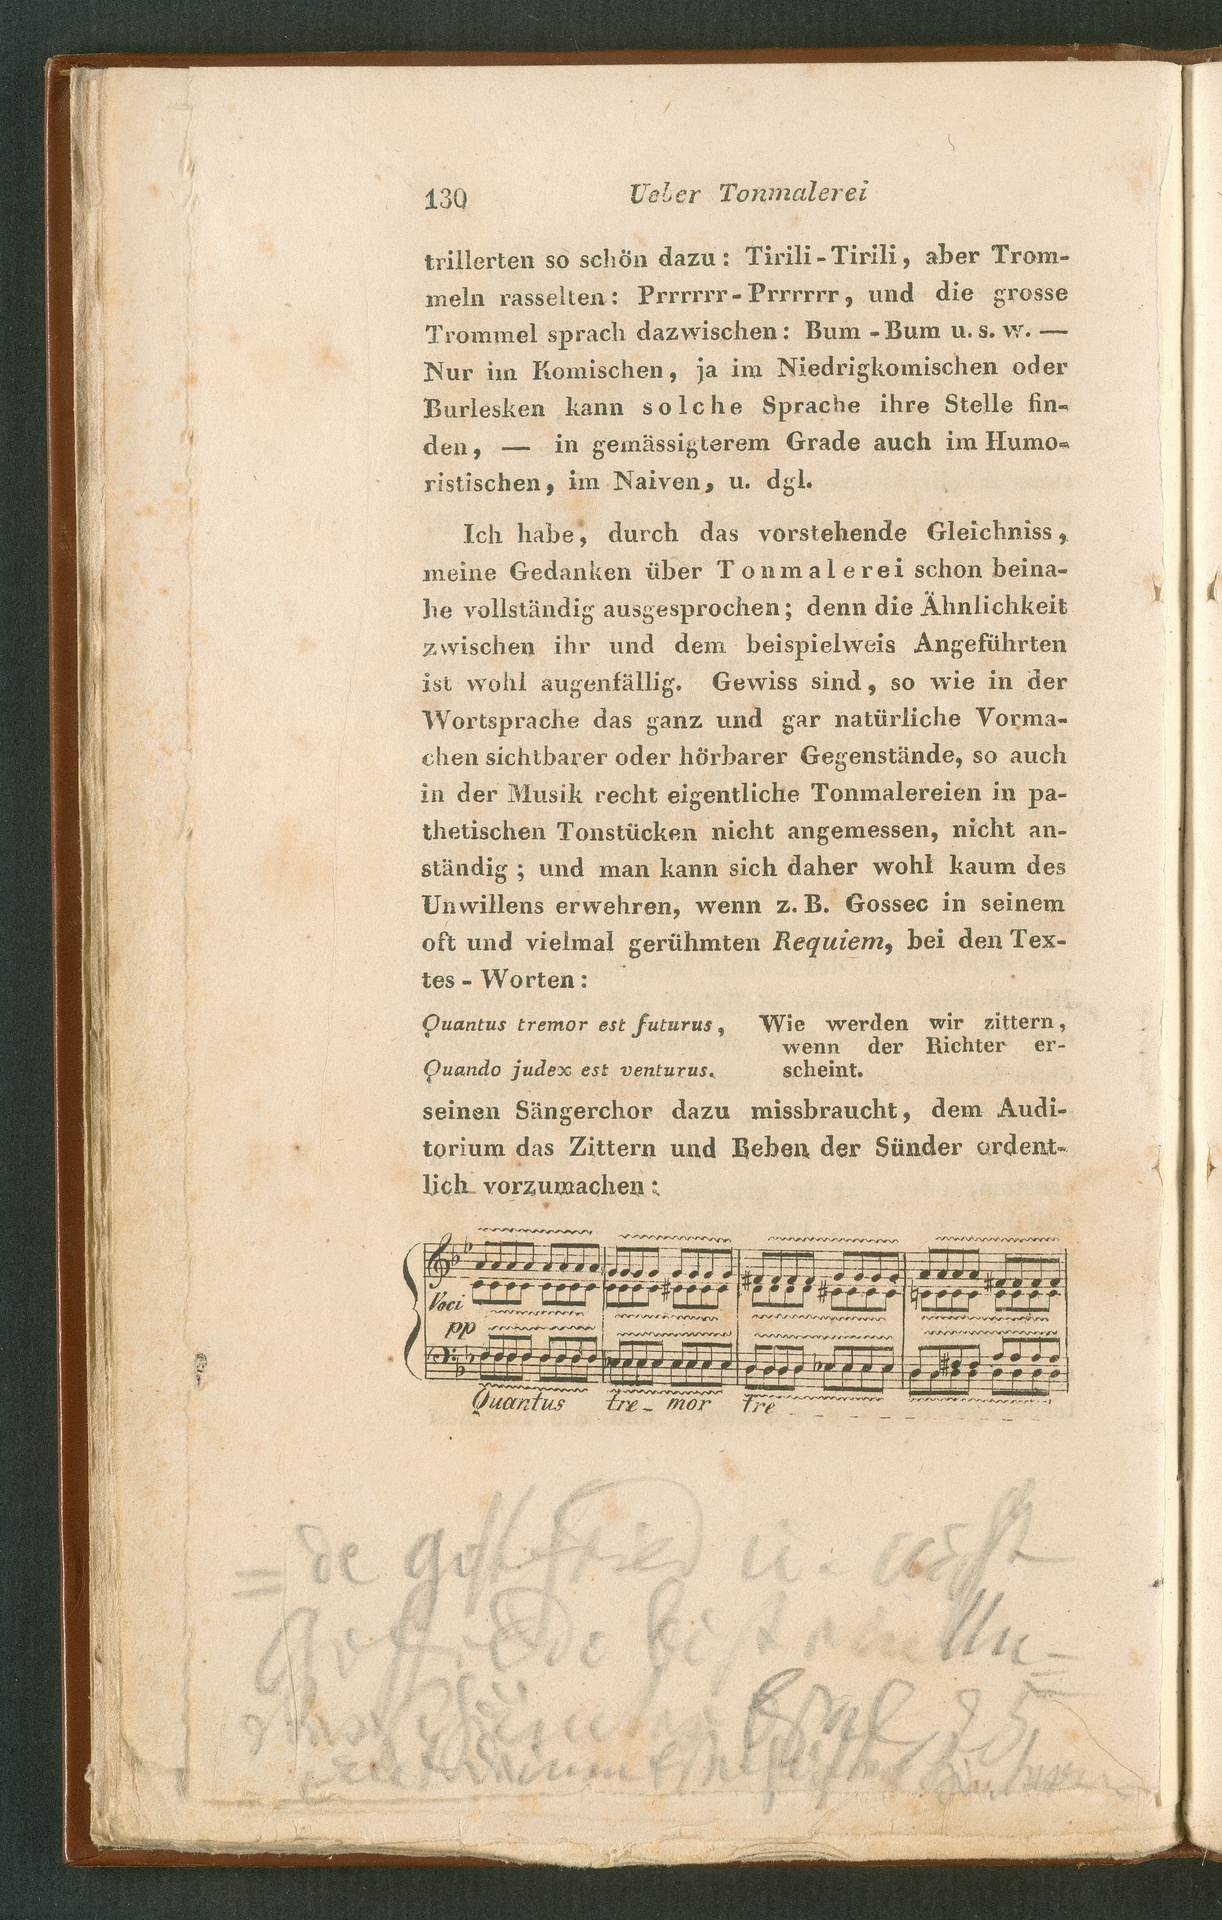 130 Ueber Tonmalerei
trillerten so schön dazu: Tirili-Tirili, aber Trom-
meln rasselten: Prrrrrr-Prrrrrr, und die grosse
Trommel sprach dazwischen: Bum -Bum u. s. w. —
Nur im Komischen, ja im Niedrigkomischen oder
Burlesken kann solche Sprache ihre Stelle fin-
den, — in gemässigterem Grade auch im Humo-
ristischen, im Naiven, u. dgl.
Ich habe, durch das vorstehende Gleichniss,
meine Gedanken über Tonmalerei schon beina-
he vollständig ausgesprochen; denn die Ähnlichkeit
zwischen ihr und dem beispielweis Angeführten
ist wohl augenfällig. Gewiss sind, so wie in der
Wortsprache das ganz und gar natürliche Vorma-
chen sichtbarer oder hörbarer Gegenstände, so auch
in der Musik recht eigentliche Tonmalereien in pa-
thetischen Tonstücken nicht angemessen, nicht an-
ständig; und man kann sich daher wohl kaum des
Unwillens erwehren, wenn z. B. Gossec in seinem
oft und vielmal gerühmten Requiem, bei den Tex-
tes - Worten:
Quantus tremor est futurus, Wie werden wir zittern,
wenn der Richter er-
Quando judex est venturus. scheint.
seinen Sängerchor dazu missbraucht, dem Audi-
torium das Zittern und Beben der Sünder ordent-
lich vorzumachen:
Voci
pp
Quantus tre- mor tre
= de gottfried u.